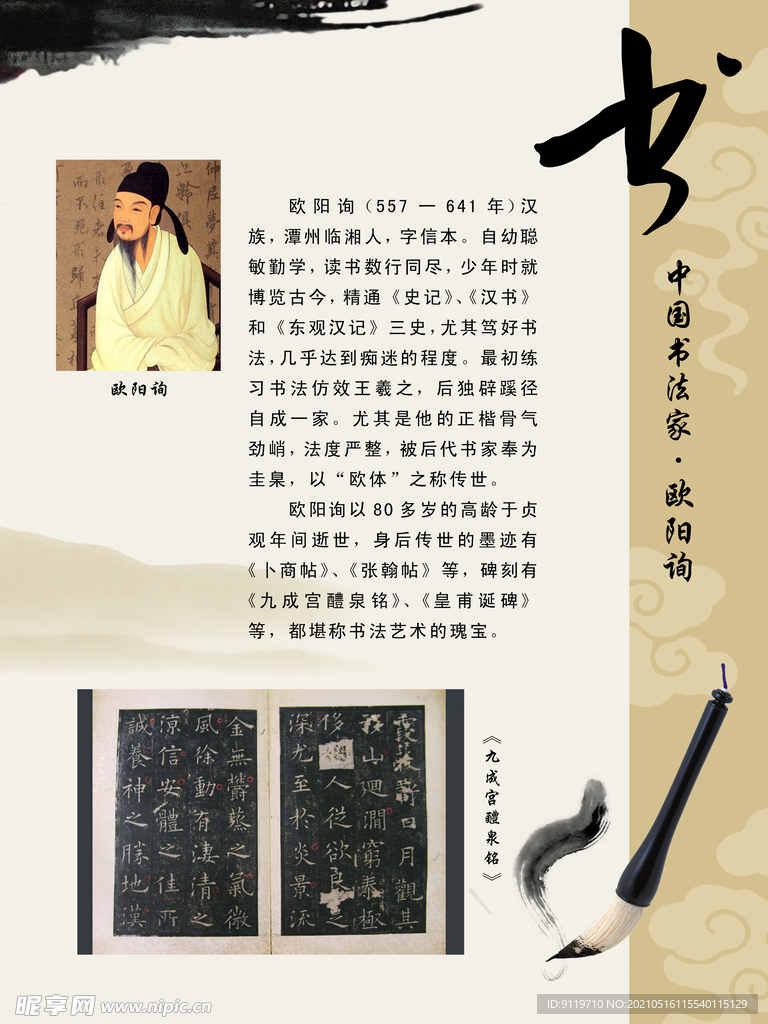 书
中国书法家·欧阳询
欧阳询（557 一 641 年）汉
族，潭州临湘人，字信本。自幼聪
敏勤学，读书数行同尽，少年时就
博览古今，精通《史记》、《汉书》
和《东观汉记》三史，尤其笃好书
法，几乎达到痴迷的程度。最初练
习书法仿效王羲之，后独辟蹊径
自成一家。尤其是他的正楷骨气
劲峭，法度严整，被后代书家奉为
圭臬，以“欧体”之称传世。
欧阳询以 80 多岁的高龄于贞
观年间逝世，身后传世的墨迹有
《卜商帖》、《张翰帖》等，碑刻有
《九成宫醴泉铭》、《皇甫诞碑》
等，都堪称书法艺术的瑰宝。
欧阳询
日月觀其
移山迴澗窮泰極
侈 人從欲良之
深尤至於炎景流
金無鬱蒸之氣微
風徐動有淒清之
涼信安體之佳所
誠養神之勝地漢
《九成宫醴泉铭》
昵享网 www.nipic.cn
ID:9119710 NO:20210516115540115129